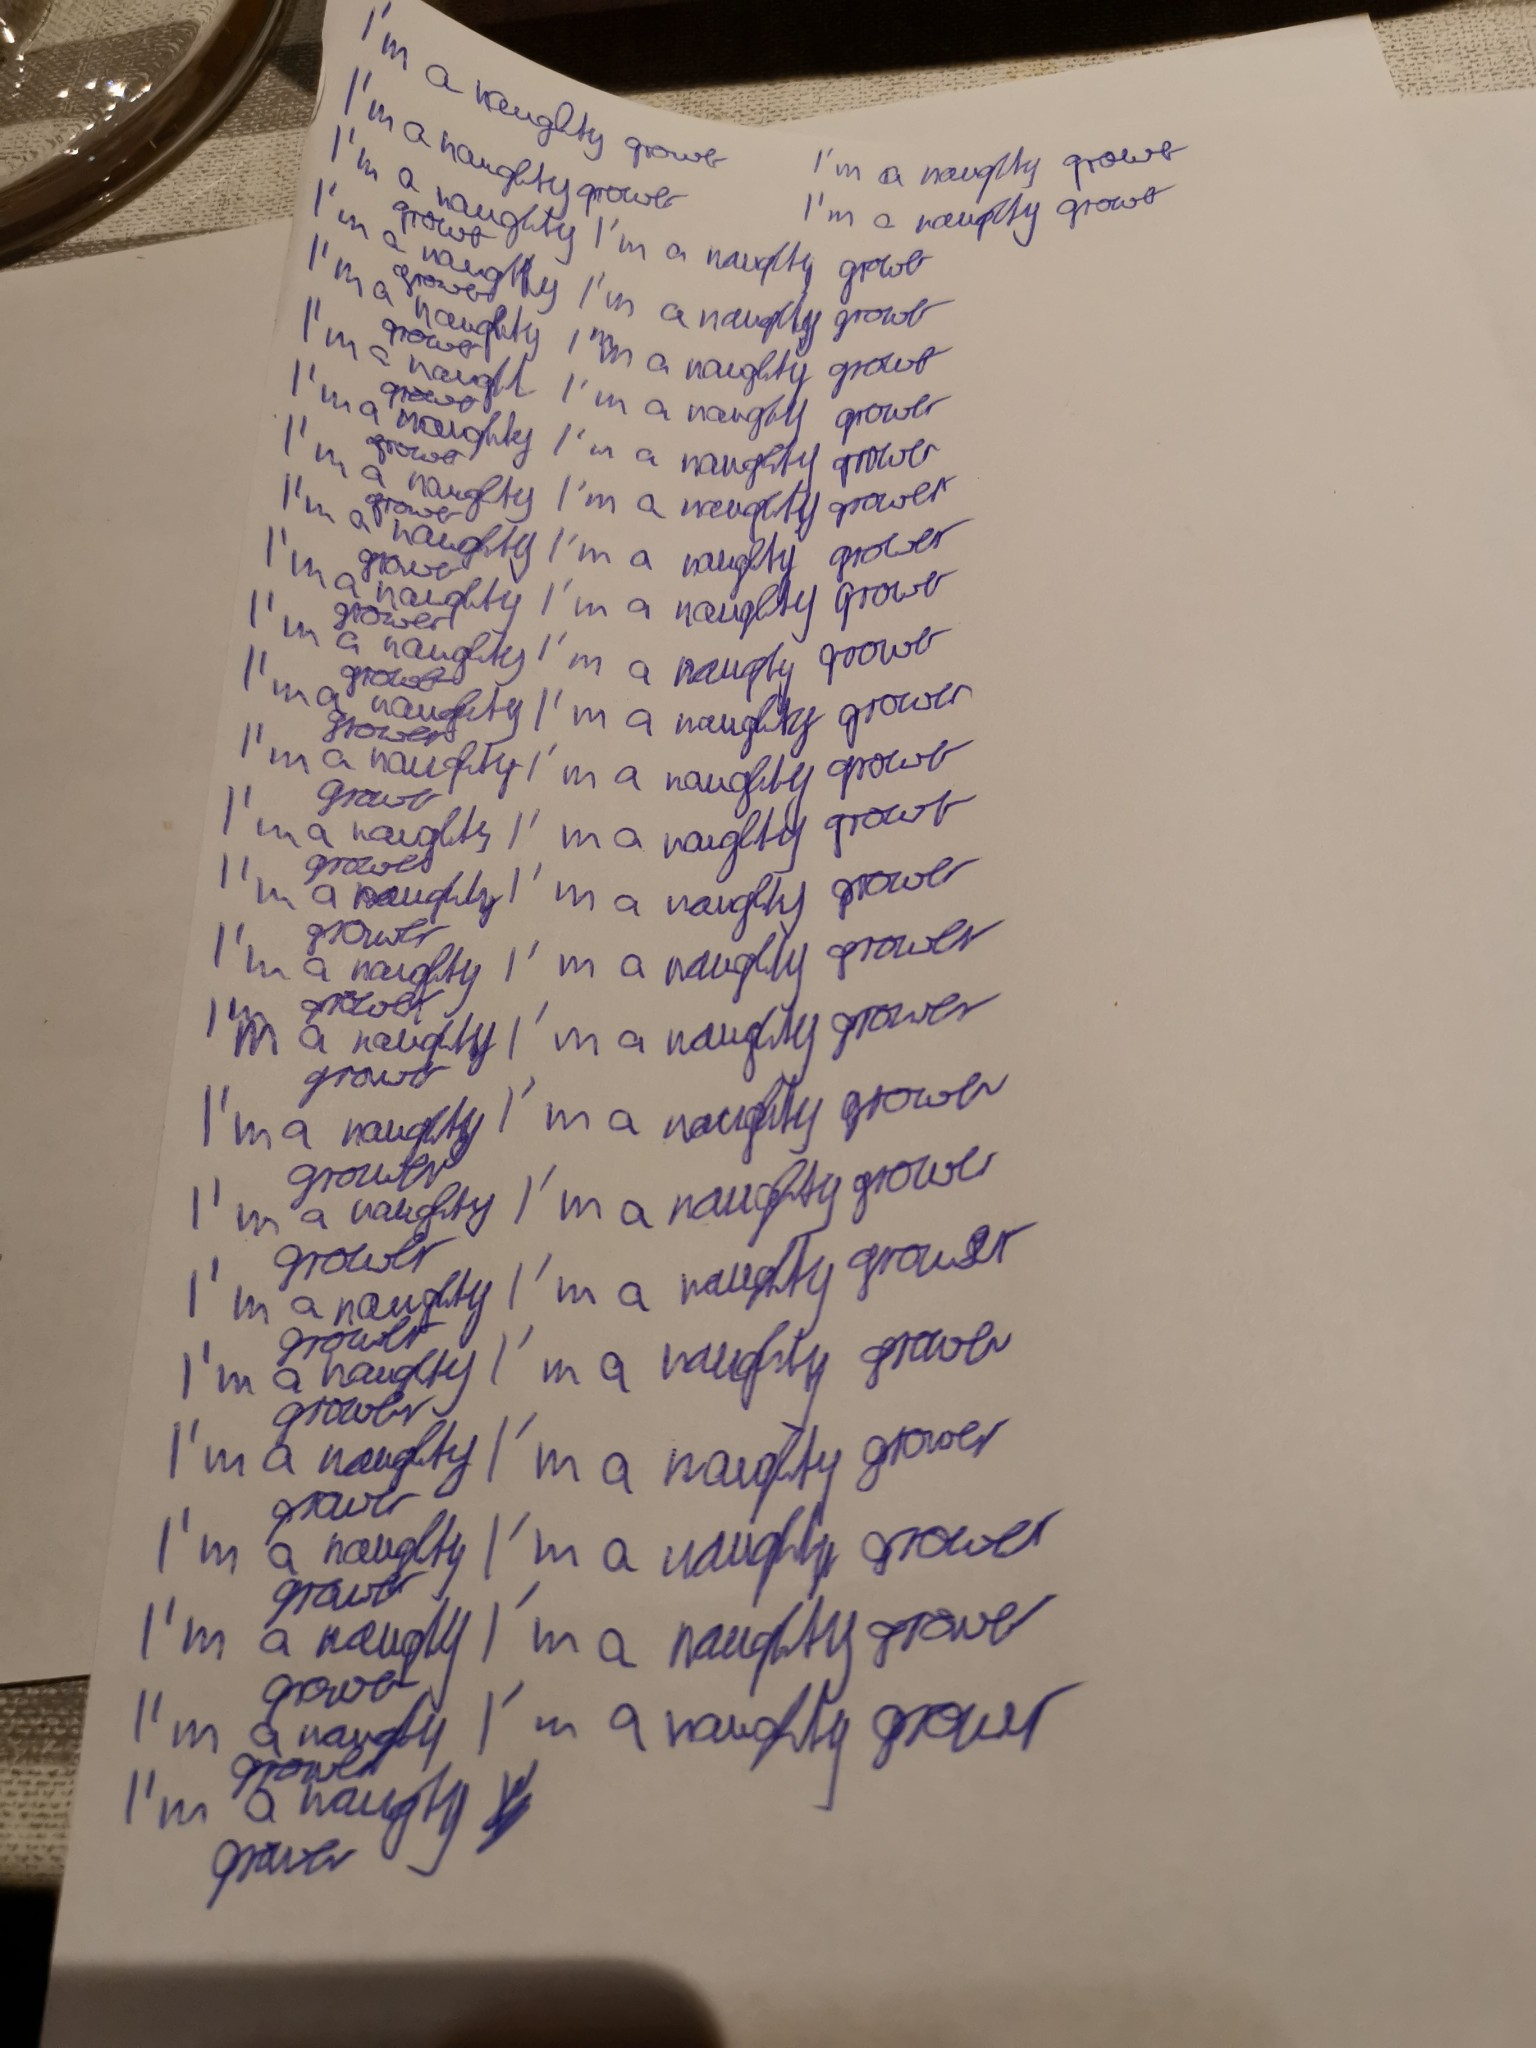 I'm a naughty grower
I'm a naughty grower I'm a naughty grower
I'm a naughty grower
I'm a naughty I'm a naughty grower
grower
I'm a naughty I'm a naughty grower
grower
I'm a naughty I'm a naughty grower
grower
I'm a naught I'm a naughty grower
grower
I'm a naughty I'm a naughty grower
grower
I'm a naughty I'm a naughty grower
grower
I'm a naughty I'm a naughty grower
grower
I'm a naughty I'm a naughty Grower
grower
I'm a naughty I'm a naugty grower
grower
I'm a naughty I'm a naughty grower
grower
I'm a naughty I'm a naughty grower
grower
I'm a naughty I'm a naughty grower
grower
I'm a naughty I'm a naughty grower
grower
I'm a naughty I'm a naughty grower
grower
I'm a naughty I'm a naughty grower
grower
I'm a naughty I'm a naughty grower
grower
I'm a naughty I'm a naughty grower
grower
I'm a naughty I'm a naughty grower
grower
I'm a naughty I'm a naughty grower
grower
I'm a naughty I'm a naughty grower
grower
I'm a naughty I'm a naughty grower
grower
I'm a naugty I'm a naughty grower
grower
I'm a naughty I'm a naughty grower
grower
I'm a naughty
grower